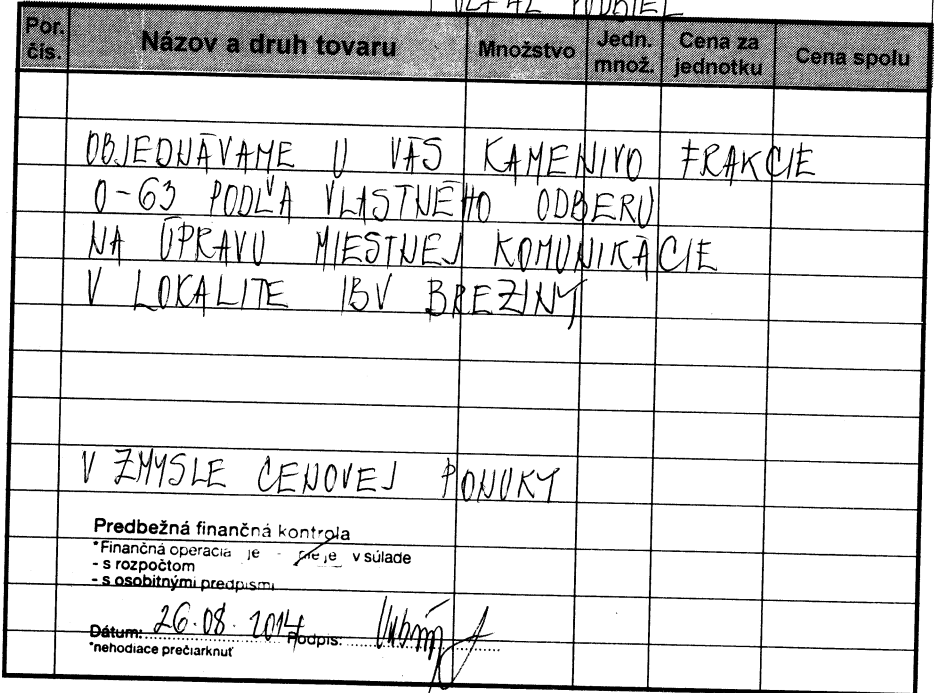 PODBIEL
Por. čís. Názov a druh tovaru Množstvo Jedn. množ. Cena za jednotku Cena spolu
OBJEDNÁVAME U VÁS KAMENIVO FRAKCIE
0-63 PODĽA VLASTNÉHO ODBERU
NA ÚPRAVU MIESTNEJ KOMUNIKÁCIE
V LOKALITE IBV BREZINY
V ZMYSLE CENOVEJ PONUKY
Predbežná finančná kontrola
*Finančná operacia je - nie je v súlade
- s rozpočtom
- s osobitnými predpismi
Dátum: 26.08.2014 Podpis:
*nehodiace prečiarknuť